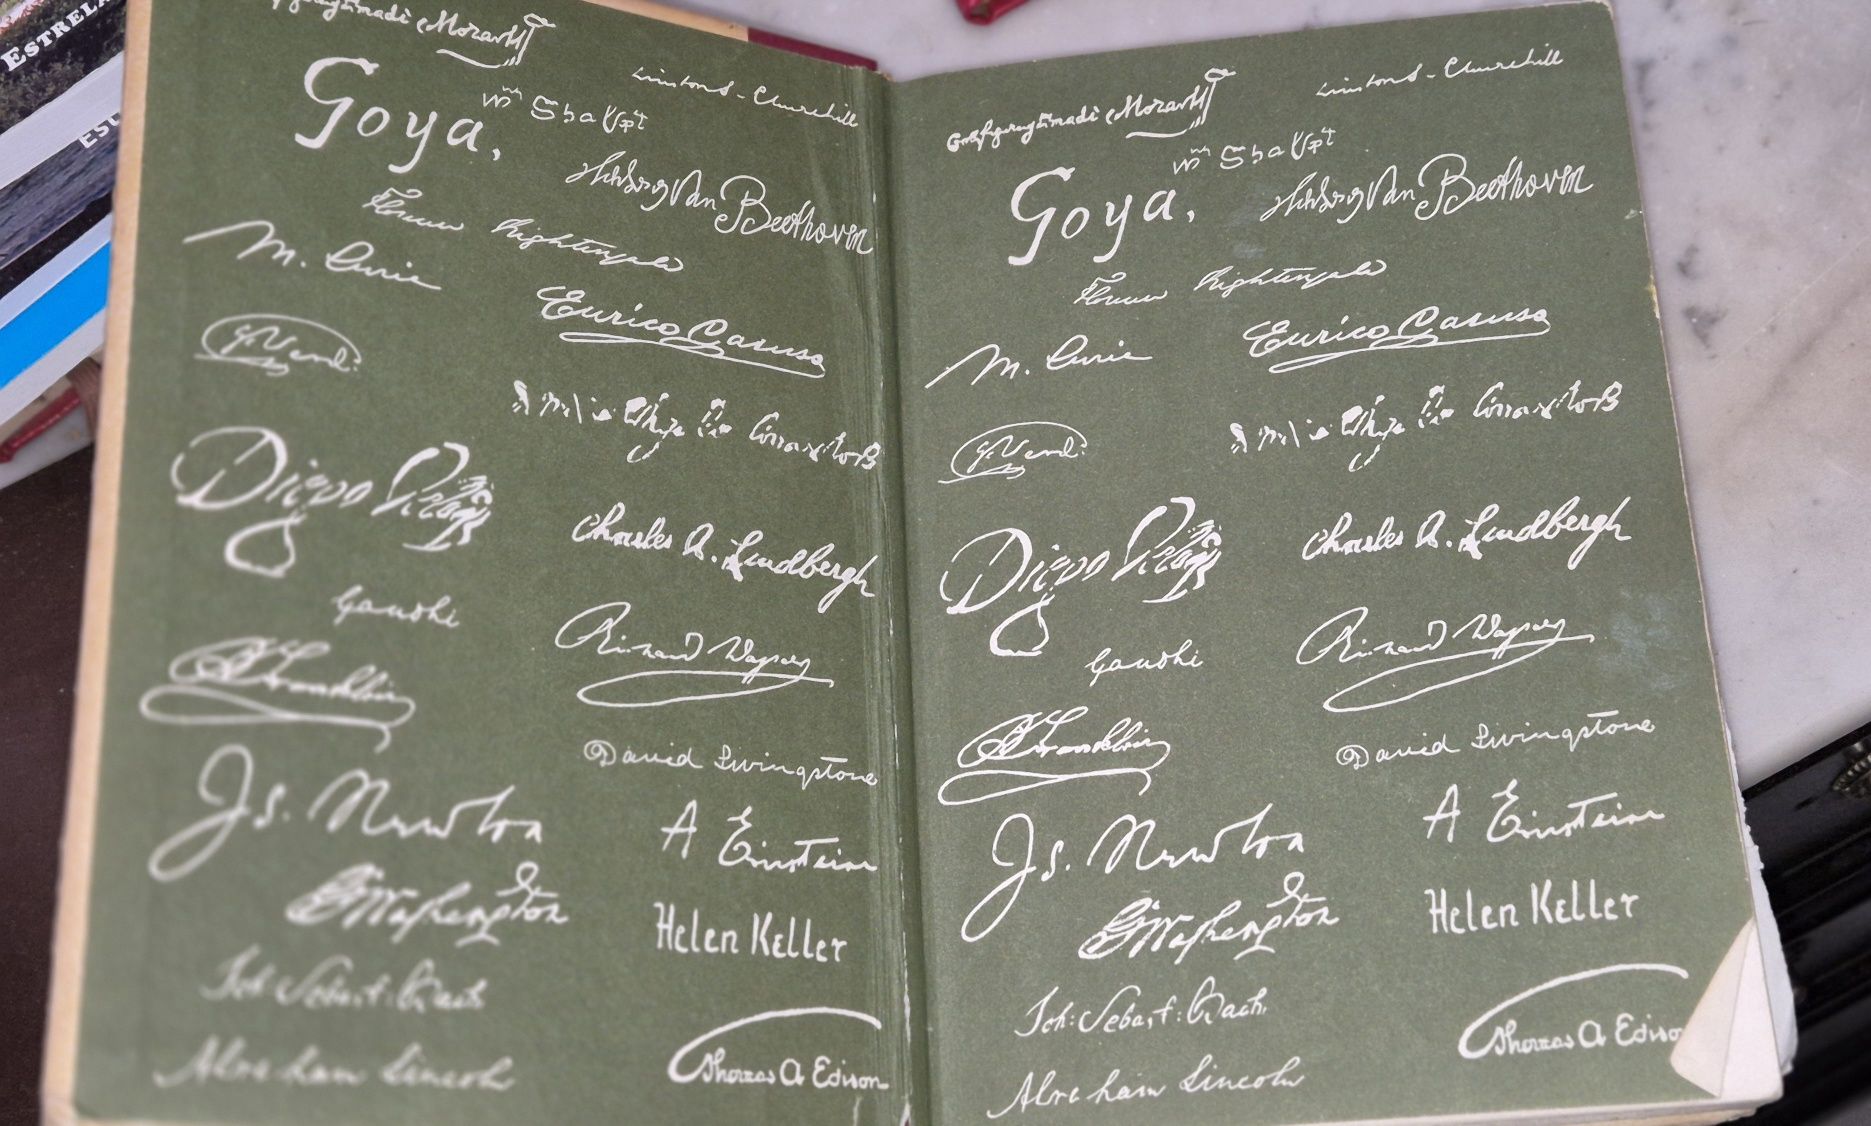 ESTRELA
Mozart
Winston S. Churchill
Goya.
Wm Shakspt
Ludwig Van Beethoven
Florence Nightingale
M. Curie
Enrico Caruso
G. Verdi
Diego Velazq
Charles A. Lindbergh
Gandhi
Richard Wagner
B Franklin
David Livingstone
Js. Newton
A Einstein
G Washington
Helen Keller
Joh: Sebast: Bach
Thomas A Edison
Abraham Lincoln
Mozart
Winston S. Churchill
Wm Shakspt
Goya.
Ludwig Van Beethoven
Florence Nightingale
Enrico Caruso
M. Curie
G. Verdi
Charles A. Lindbergh
Diego Velazq
Gandhi
Richard Wagner
B Franklin
David Livingstone
A Einstein
Js. Newton
Helen Keller
G Washington
Joh: Sebast: Bach.
Thomas A Edison
Abraham Lincoln